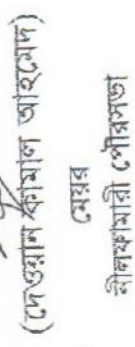 (দেওয়ান কামাল আহমেদ)
মেয়র
নীলফামারী পৌরসভা